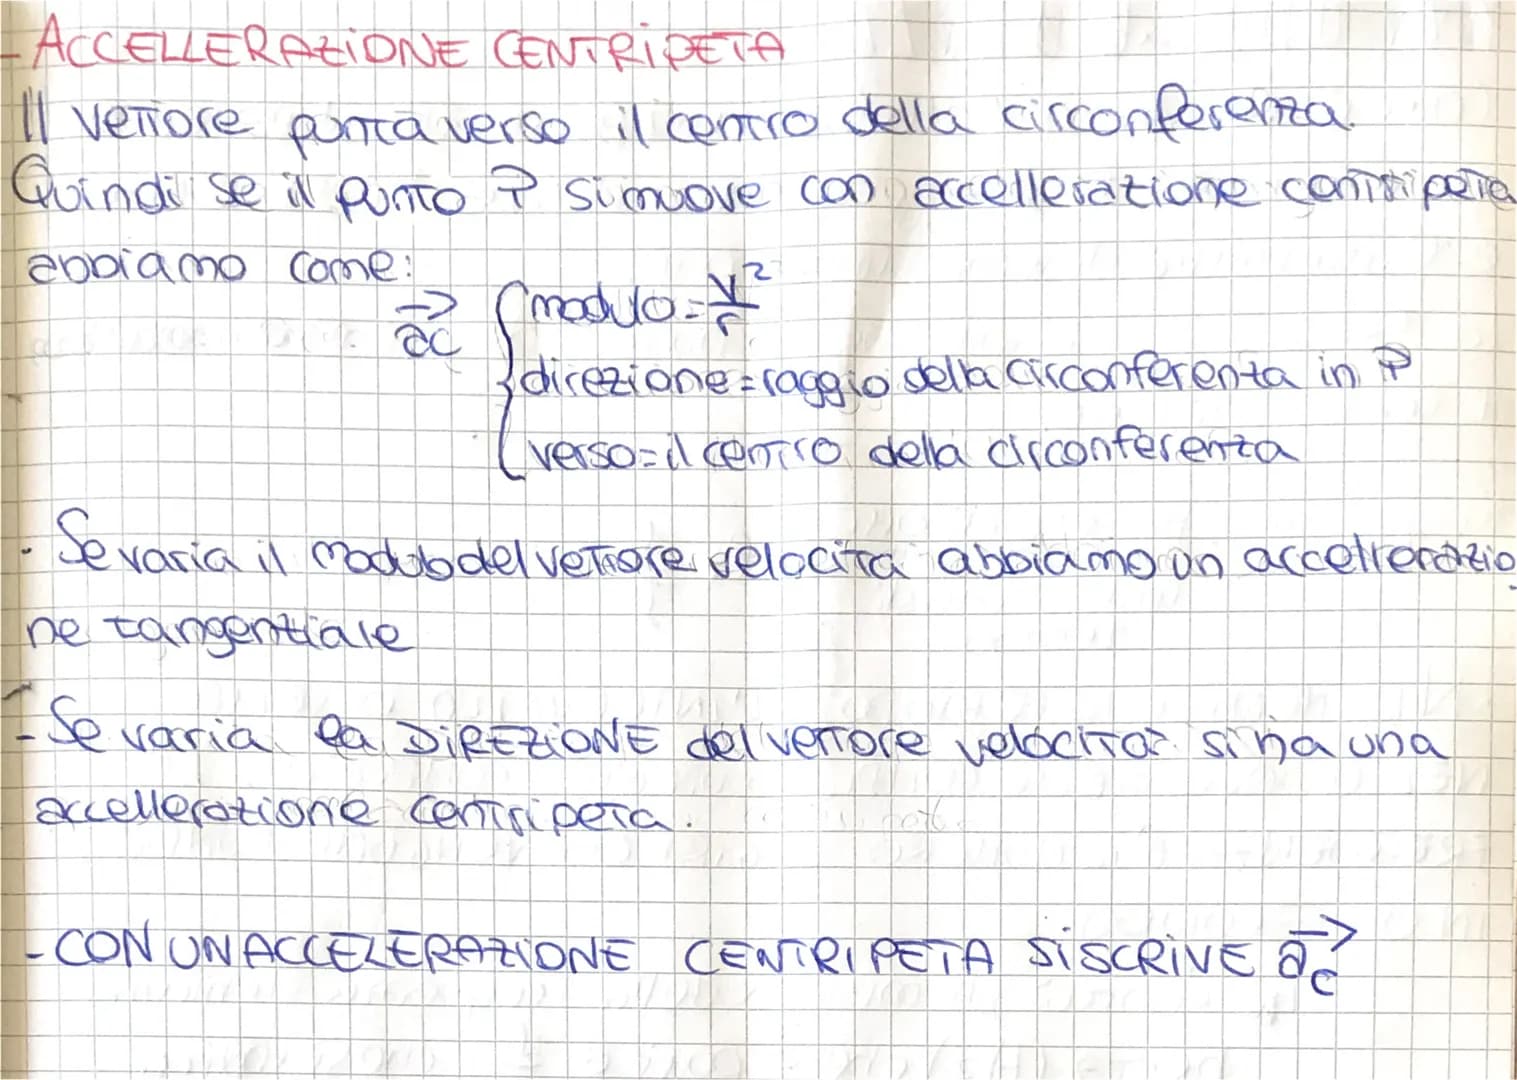 - ACCELLERAZIONE CENTRIPETA
Il vettore punta verso il centro della circonferenza.
Quindi se il punto P si muove con accellerazione centripeta
abbiamo come:
ac { modulo = v²/r
direzione = raggio della circonferenza in P
verso = il centro della circonferenza
· Se varia il modulo del vettore velocità abbiamo un accellerazio
ne tangenziale
- Se varia la DIREZIONE del vettore velocità si ha una
accellerazione centripeta.
- CON UN ACCELERAZIONE CENTRIPETA SI SCRIVE ac